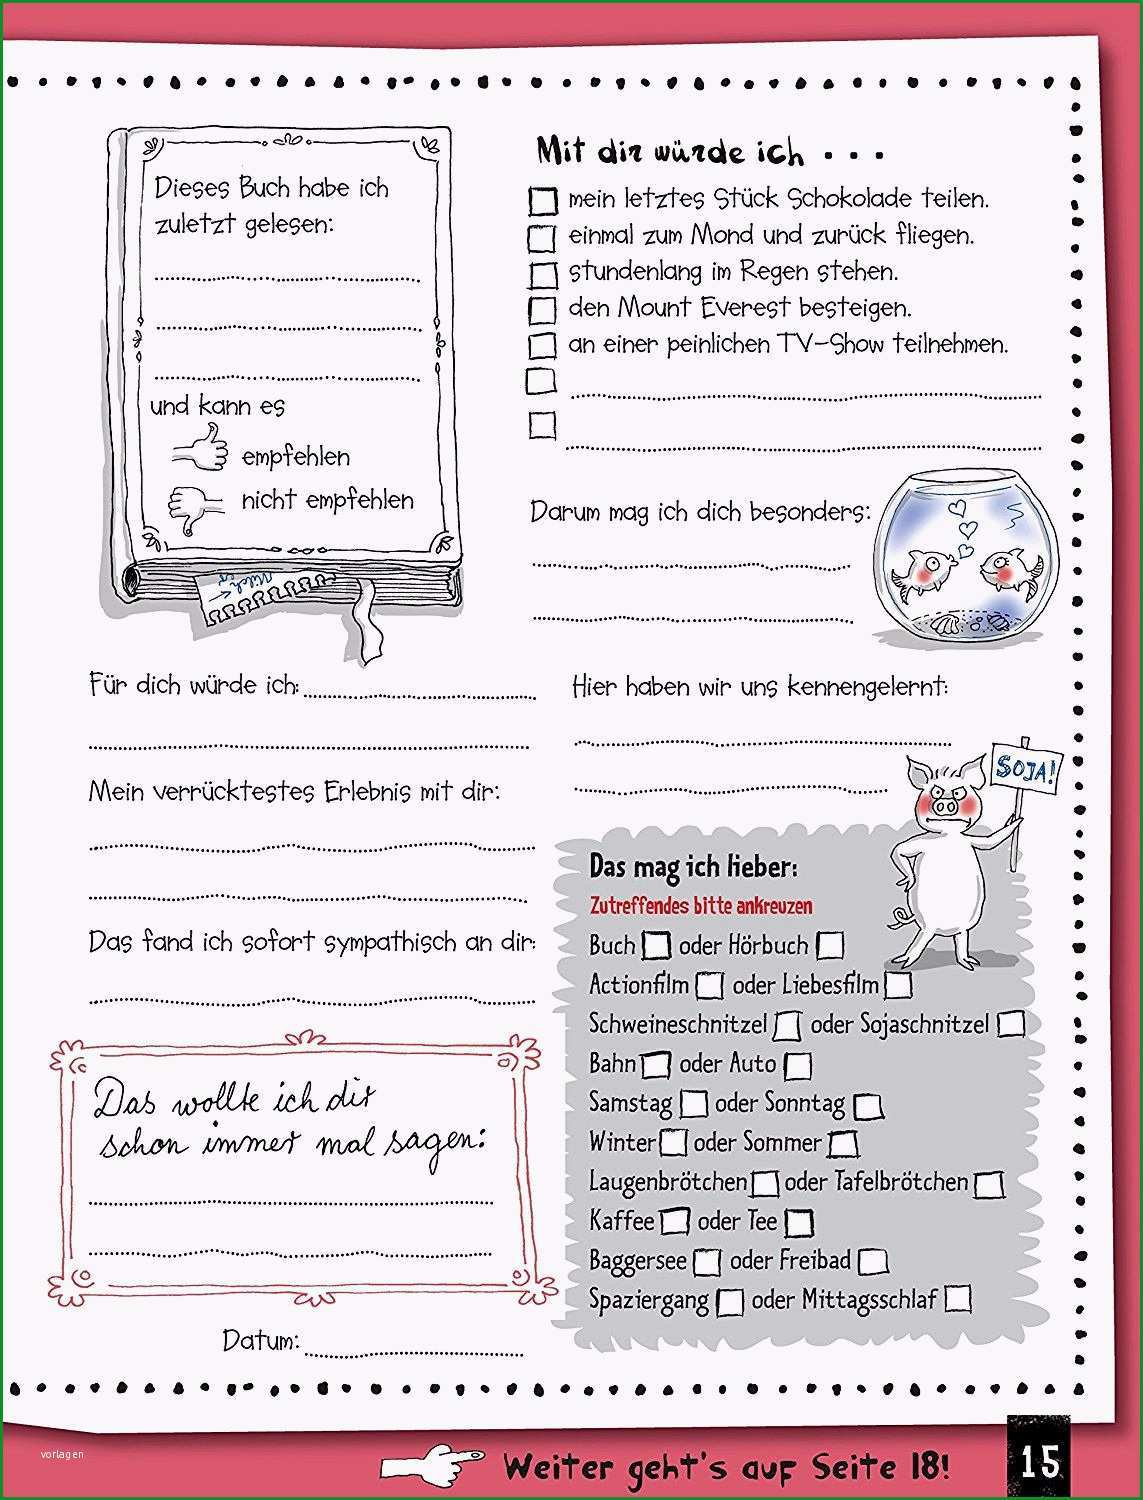 Dieses Buch habe ich
zuletzt gelesen:
und kann es
empfehlen
nicht empfehlen
Milch
Mit dir würde ich . . .
mein letztes Stück Schokolade teilen.
einmal zum Mond und zurück fliegen.
stundenlang im Regen stehen.
den Mount Everest besteigen.
an einer peinlichen TV-Show teilnehmen.
Darum mag ich dich besonders:
Für dich würde ich:
Hier haben wir uns kennengelernt:
Mein verrücktestes Erlebnis mit dir:
Das fand ich sofort sympathisch an dir:
SOJA!
Das mag ich lieber:
Zutreffendes bitte ankreuzen
Buch oder Hörbuch
Actionfilm oder Liebesfilm
Schweineschnitzel oder Sojaschnitzel
Bahn oder Auto
Samstag oder Sonntag
Winter oder Sommer
Laugenbrötchen oder Tafelbrötchen
Kaffee oder Tee
Baggersee oder Freibad
Spaziergang oder Mittagsschlaf
Das wollte ich dir
schon immer mal sagen:
Datum:
vorlagen
Weiter geht's auf Seite 18!
15